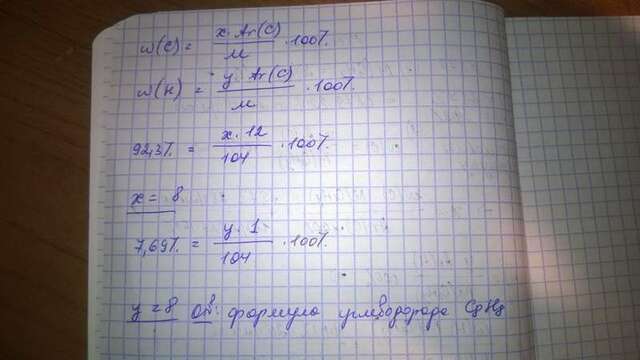 w(C) = x · Ar(C) / M · 100%
w(H) = y · Ar(C) / M · 100%
92,3% = x · 12 / 104 · 100%
x = 8
7,69% = y · 1 / 104 · 100%
y = 8 Отв: формула углеводорода C8H8